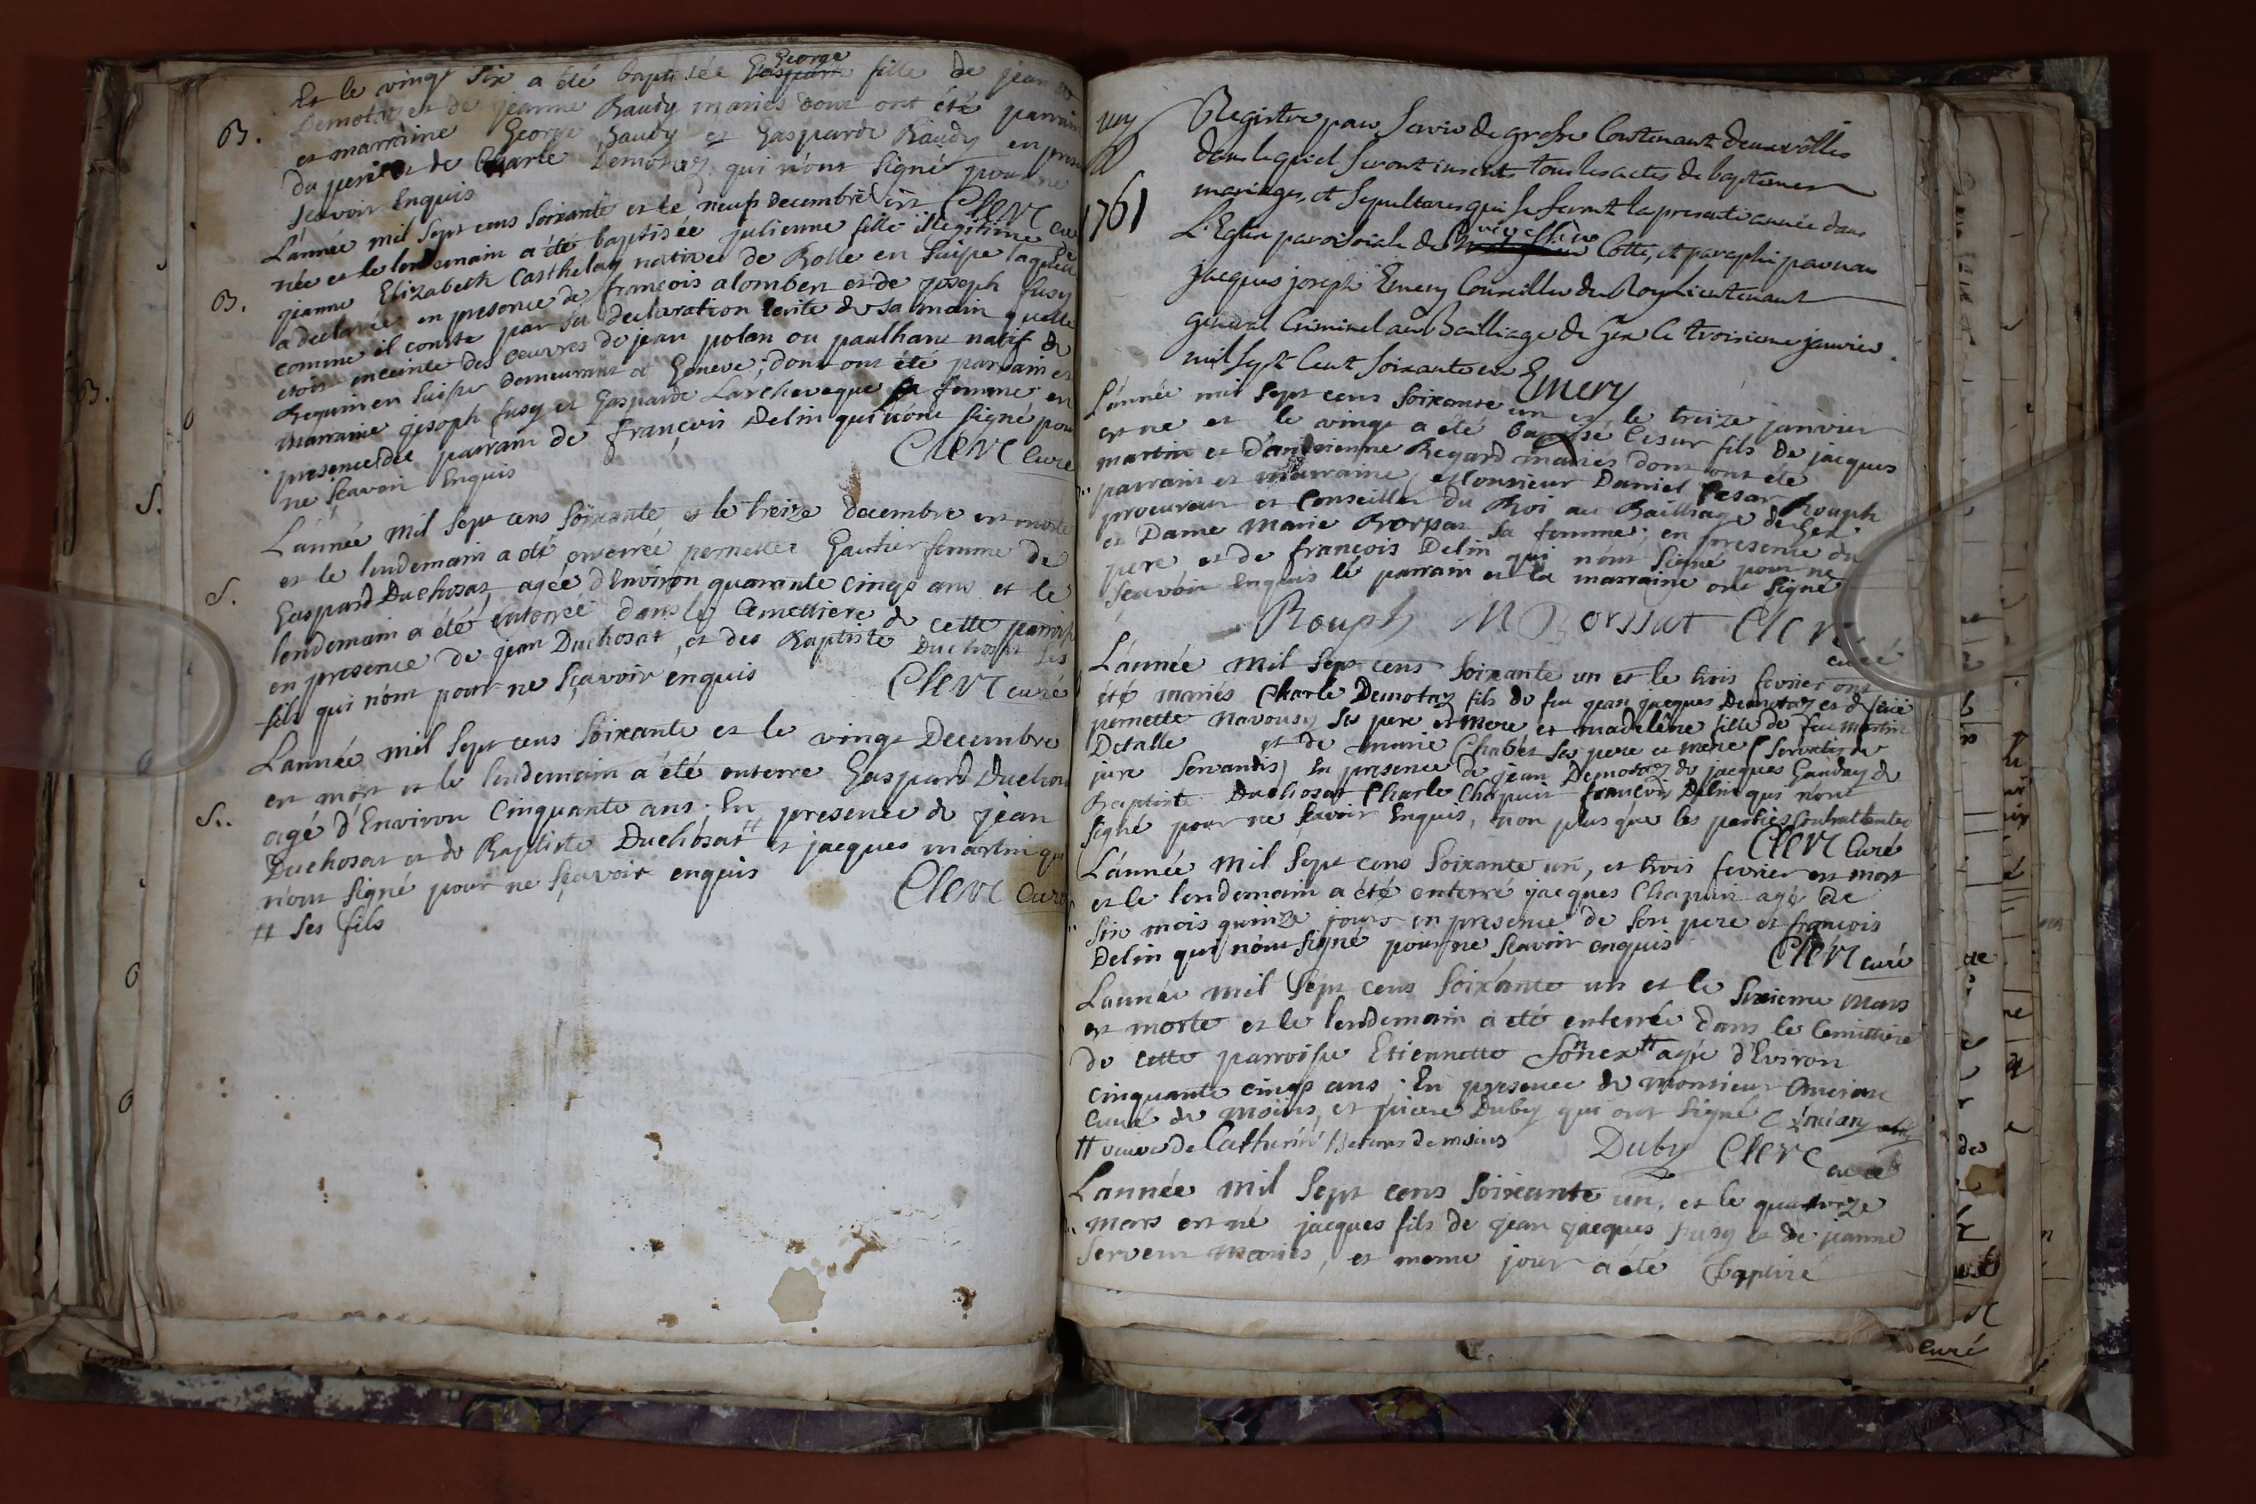 Et le vingt six a été baptisée George fille de jean
B. Demotaz et de jeanne Baudy mariés dont ont été parrain
et marraine George Baudy et Gasparde Baudy en
du pere et de Charle Demotaz qui n'ont signé pour ne
sçavoir enquis Clerc
L'année mil sept cens soixante et le neuf decembre est
née et le lendemain a été baptisée julienne fille illegitime de
B. jeanne Elizabeth Casthelay native de Rolle en Suisse laquelle
a declarée en presence de françois alombert et de joseph fusy
comme il conste par sa declaration ecrite de sa main quelle
etoit enceinte des oeuvres de jean polan ou paulhan natif de
Bequin en Suisse demeurant a Geneve; dont ont été parrain et
marraine joseph fusy et Gasparde Larcheveque sa femme en
presence du parrain de françois Delin qui n'ont signé pour
ne sçavoir enquis Clerc Curé
L'année mil sept cens soixante et le treize decembre est morte
et le lendemain a été enterrée pernette Gautier femme de
S. Gaspard Duchosat agée d'Environ quarante cinq ans et le
lendemain a été enterrée dans le Cemettiere de cette parroisse
en presence de jean Duchosat, et des Baptiste Duchosat ses
fils qui n'ont pour ne sçavoir enquis Clerc curé
L'année mil sept cens soixante et le vingt Decembre
est mort et le lendemain a été enterre Gaspard Duchosat
S. agé d'Environ Cinquante ans. En presence de jean
Duchosat et de Baptiste Duchosat # et jacques martin qui
n'ont signé pour ne sçavoir enquis Clerc Curé
# ses fils
Registre pour servir de grosse Contenant deux rolles
dans lequel seront inscrits tous les actes de baptemes
1761 mariages, et sepultures qui se feront la presente année dans
L'Eglise paroissiale de Cotté, et paraphé par nous
jacques joseph Emery Conseiller du Roy Lieutenant
general Criminel au Bailliage de Gex le troisieme janvier
mil sept Cent soixante un Emery
L'année mil sept cens soixante un et le treize janvier
est né et le vingt a été baptisé Cesar fils de jacques
martin et D'andrienne Regard mariés dont ont été
parrain et marraine Monsieur Daniel Cesar Rouph
procureur et Conseiller du Roi au Bailliage de Gex
et Dame Marie Borssat sa femme; en presence du
pere et de françois Delin qui n'ont signé pour ne
sçavoir enquis le parrain et la marraine ont signé
Rouph M Borssat Clerc
curé
L'année mil sept cens soixante un et le trois fevrier ont
été mariés Charle Demotaz fils de feu jean jacques Demotaz et de
pernette navousy ses pere et mere et madeleine fille de feu martin
Detalle et de marie Chabet ses pere et mere (servatis de
jure servandis) En presence de jean Demotaz de jacques Gauday de
Baptiste Duchosat Charle Chapuis françois Delin qui n'ont
signé pour ne sçavoir enquis, non plus que les parties contractantes
Clerc Curé
L'année mil sept cens soixante un, et trois fevrier est mort
et le lendemain a été enterré jacques Chapuis agé de
six mois quinze jours en presence de son pere et françois
Delin qui n'ont signé pour ne sçavoir enquis Clerc curé
L'année mil sept cens soixante un et le sixieme mars
est morte et le lendemain a été enterrée dans le Cemettiere
de cette parroisse Etiennette # agée d'Eviron
cinquante cinq ans. En presence de monsieur
Curé de moins, et pierre Duby qui ont signé
# veuve de de moins Duby Clerc curé
L'année mil sept cens soixante un, et le quatorze
mars est né jacques fils de jean jacques fusy et de jeanne
Servent mariés, et meme jour a été Baptisé
curé